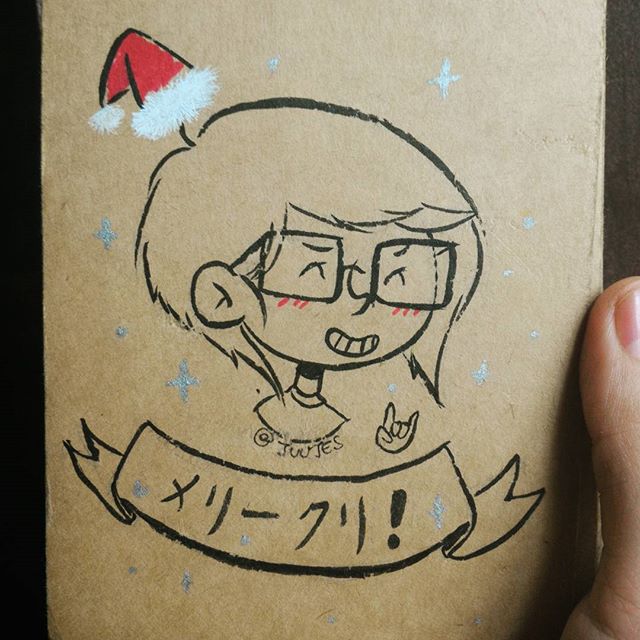 @JUUJES
メリークリ!